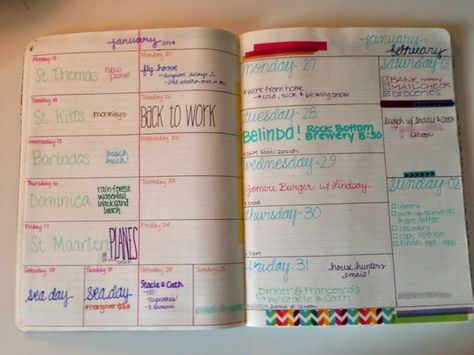 january 2014
Monday 13
St. Thomas
new purse
Monday 20
fly home
- airport delays :(
Tuesday 14
St. Kitts
monkeys
Tuesday 21
BACK TO WORK
Wednesday 15
Barbados
beach break!
Wednesday 22
Thursday 16
Dominica
rainforest
waterfall
black sand
beach
Thursday 23
Friday 17
St. Maarten
PLANES
Friday 24
Saturday 18
sea day
Sunday 19
sea day
Saturday 25
Stacie & Cath
- cupcakes!
Sunday 26
january
february
monday-27
work from home
→ cold, sick & blowing snow
tuesday-28
Belinda! Rock Bottom
Brewery 5:30
wednesday-29
Zombie Burger w/ Lindsay
thursday-30
friday 31
house hunters
email!
Dinner @ Francesca's
w/ Stacie & Cath
saturday 01
BANK
MAILCHECK
GROCERIES
lunch w/ Stacie & Cath
sunday 02
library
pick-up sundries
& get coffee
laundry
copy license
finish apt. app